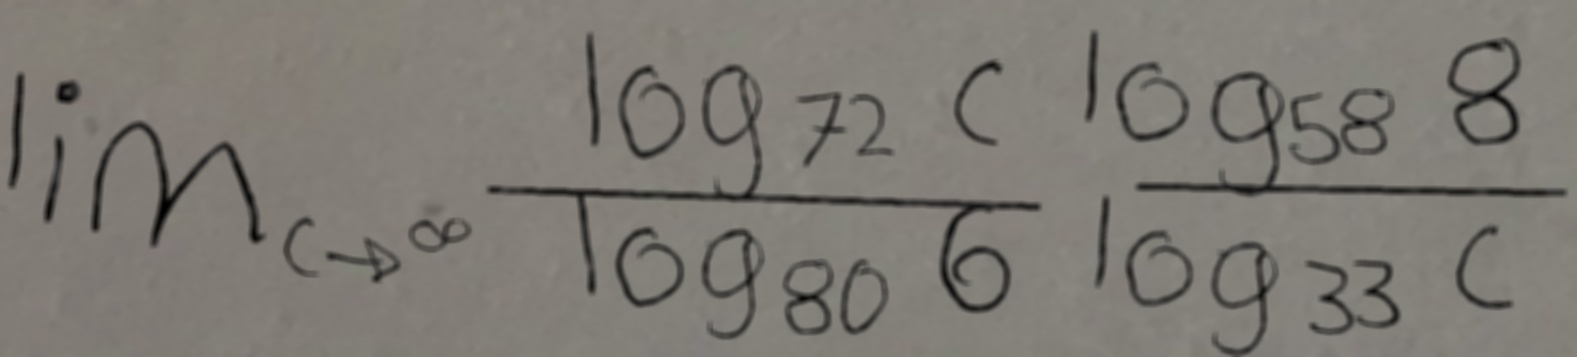 \lim_{c \to \infty} \frac{\log_{72} c}{\log_{80} 6} \frac{\log_{58} 8}{\log_{33} c}